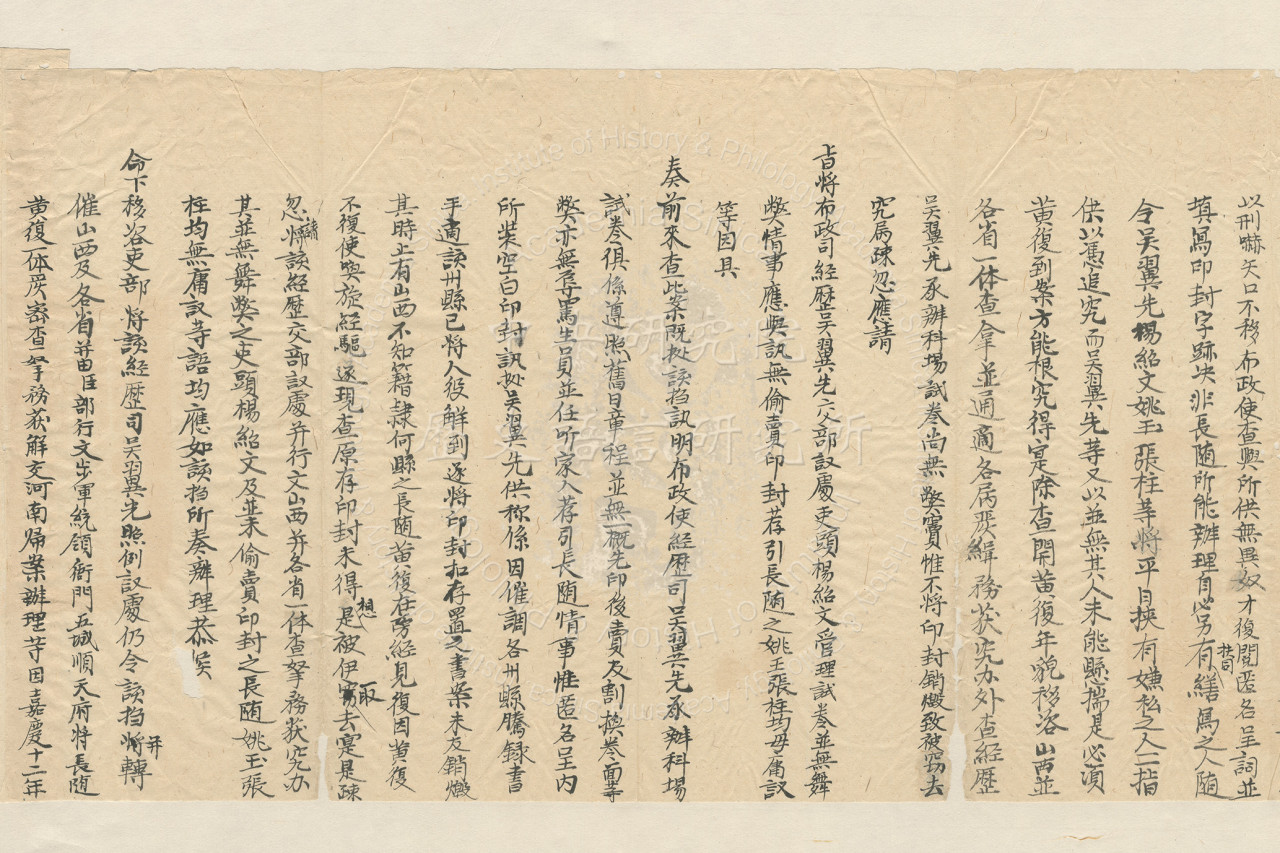 以刑嚇矢口不移布政使查與所供無異奴才復閱匿名呈詞並
填寫印封字跡決非長随所能辦理自必另有替繕寫之人随
令吴翼先楊紹文姚玉張柱等將平日挾有嫌私之人一一指
供以憑追究而吴翼先等又以並無其人未能懸揣是必須
黄復到案方能根究得寔除查開黄復年貌移咨山西並
各省一体查拿並通適各屬嚴緝務获究办外查經歷
吴翼先承辦科場試卷尚無弊竇惟不将印封銷燬致被窃去
究屬疎忽應請
旨將布政司經歷吴翼先交部议處吏頭楊紹文受理試卷並無舞
弊情事應與訊無偷賣印封荐引長随之姚玉張柱均毋庸议
等因具
奏前來查此案既㨿該撫訊明布政使經歷司吴翼先承辦科場
試卷俱係遵照舊日章程並無一概先印後賣及割換卷面等
弊亦無辱罵生員並任听家人荐引長随情事惟匿名呈内
所装空白印封訊㨿吴翼先供称係因催調各州縣騰録書
手適該州縣已将人役解到遂將印封扣存置之書案未及銷燬
其時止有山西不知籍隸何縣之長随黄復在旁經見復因黄復
不復使喚旋經驅逐現查原存印封未得想是被伊窃取去寔是疎
忽請將該經歷交部议處并行文山西并各省一体查拏務获究办
其並無舞弊之吏頭楊紹文及並未偷賣印封之長随姚玉張
柱均無庸议等語均應如該撫所奏辦理恭候
命下移咨吏部將該經歷司吴翼先照例议處仍令該撫并將轉
催山西及各省並臣部行文步軍統領衙門五城順天府將長随
黄復一体嚴密查拏務获解交河南歸案辦理等因嘉慶十二年